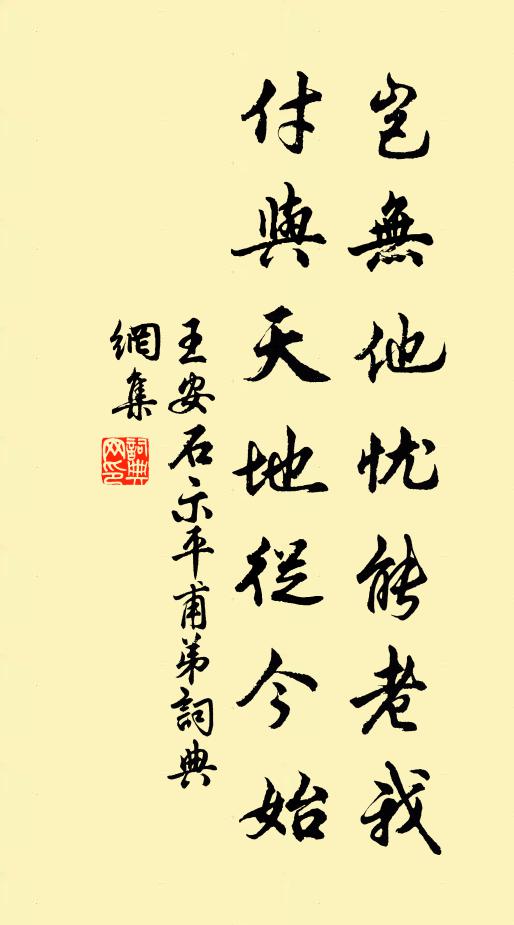 豈無他忧能老我
付與天地從今始
王安石示平甫弟詞典
網集
詞典網印